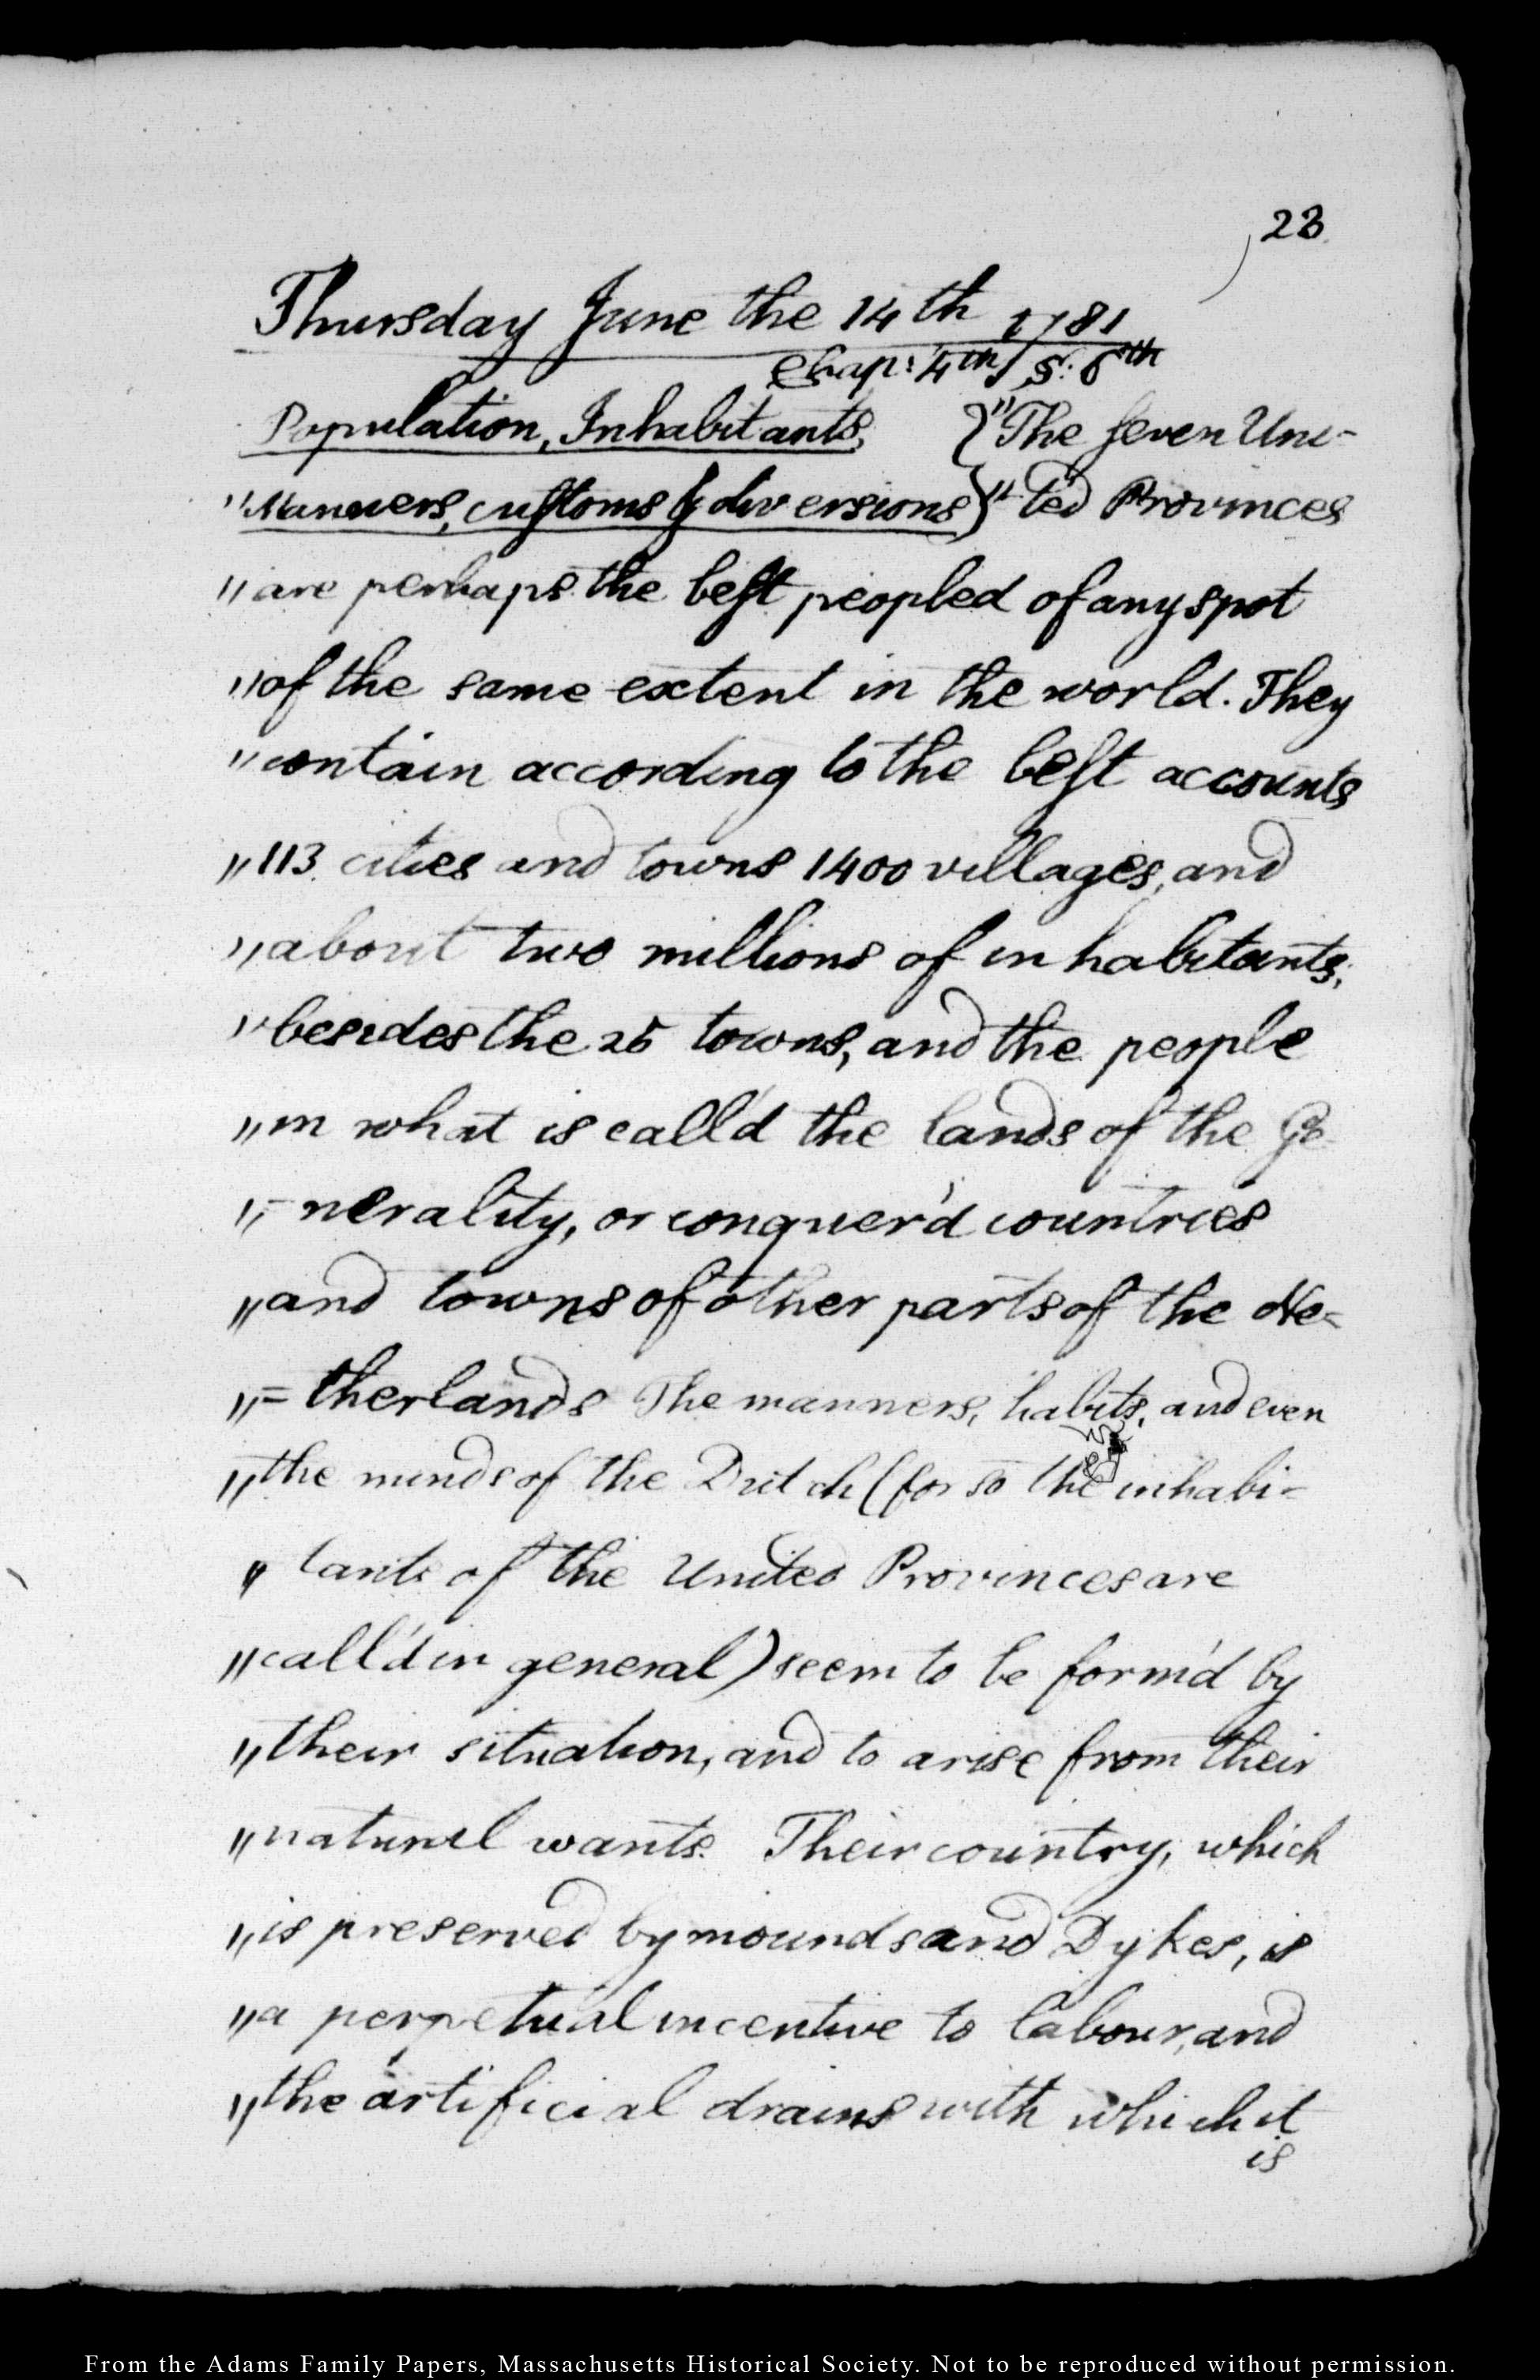 23
Thursday June the 14th 1781
Chap: 4th S: 6th
Population, Inhabitants, } "The seven Uni-
"Manners, customs & diversions } " ted Provinces
"are perhaps the best peopled of any spot
"of the same extent in the world. They
"contain according to the best accounts
"113 cities and towns 1400 villages, and
"about two millions of inhabitants,
"besides the 25 towns, and the people
"in what is call'd the lands of the Ge
"- nerality, or conquer'd countries
"and towns of other parts of the Ne=
"= therlands The manners, habits, and even
"the minds of the Dutch (for so the inhabi=
" tants of the United Provinces are
"call'd in general) seem to be form'd by
"their situation, and to arise from their
"natural wants. Their country, which
"is preserved by mounds and Dykes, is
"a perpetual incentive to labour, and
"the artificial drains with which it
is
From the Adams Family Papers, Massachusetts Historical Society. Not to be reproduced without permission.